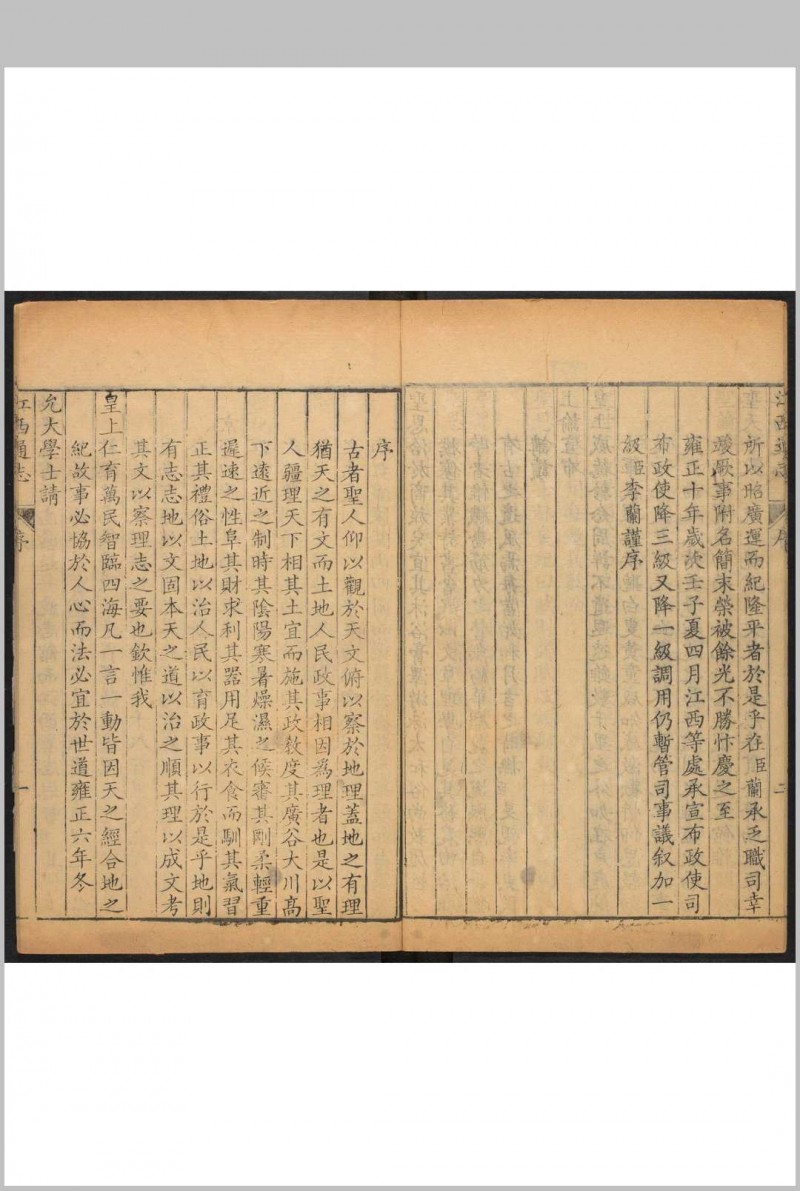 江西通志 序 二
所以昭廣運而紀隆平者於是乎在臣蘭承乏職司幸
竣厥事附名簡末榮被餘光不勝忭慶之至
雍正十年歲次壬子夏四月江西等處承宣布政使司
布政使降三級又降一級調用仍暫管司事議叙加一
級臣李蘭謹序
序
古者聖人仰以觀於天文俯以察於地理蓋地之有理
猶天之有文而土地人民政事相因為理者也是以聖
人疆理天下相其土宜而施其政敎度其廣谷大川高
下遠近之制時其陰陽寒暑燥濕之候審其剛柔輕重
遲速之性阜其財求利其器用足其衣食而馴其氣習
正其禮俗土地以治人民以育政事以行於是乎地則
有志志地以文固本天之道以治之順其理以成文考
其文以察理志之要也欽惟我
皇上仁育萬民智臨四海凡一言一動皆因天之經合地之
紀故事必協於人心而法必宜於世道雍正六年冬
允大學士請
江西通志 序 一